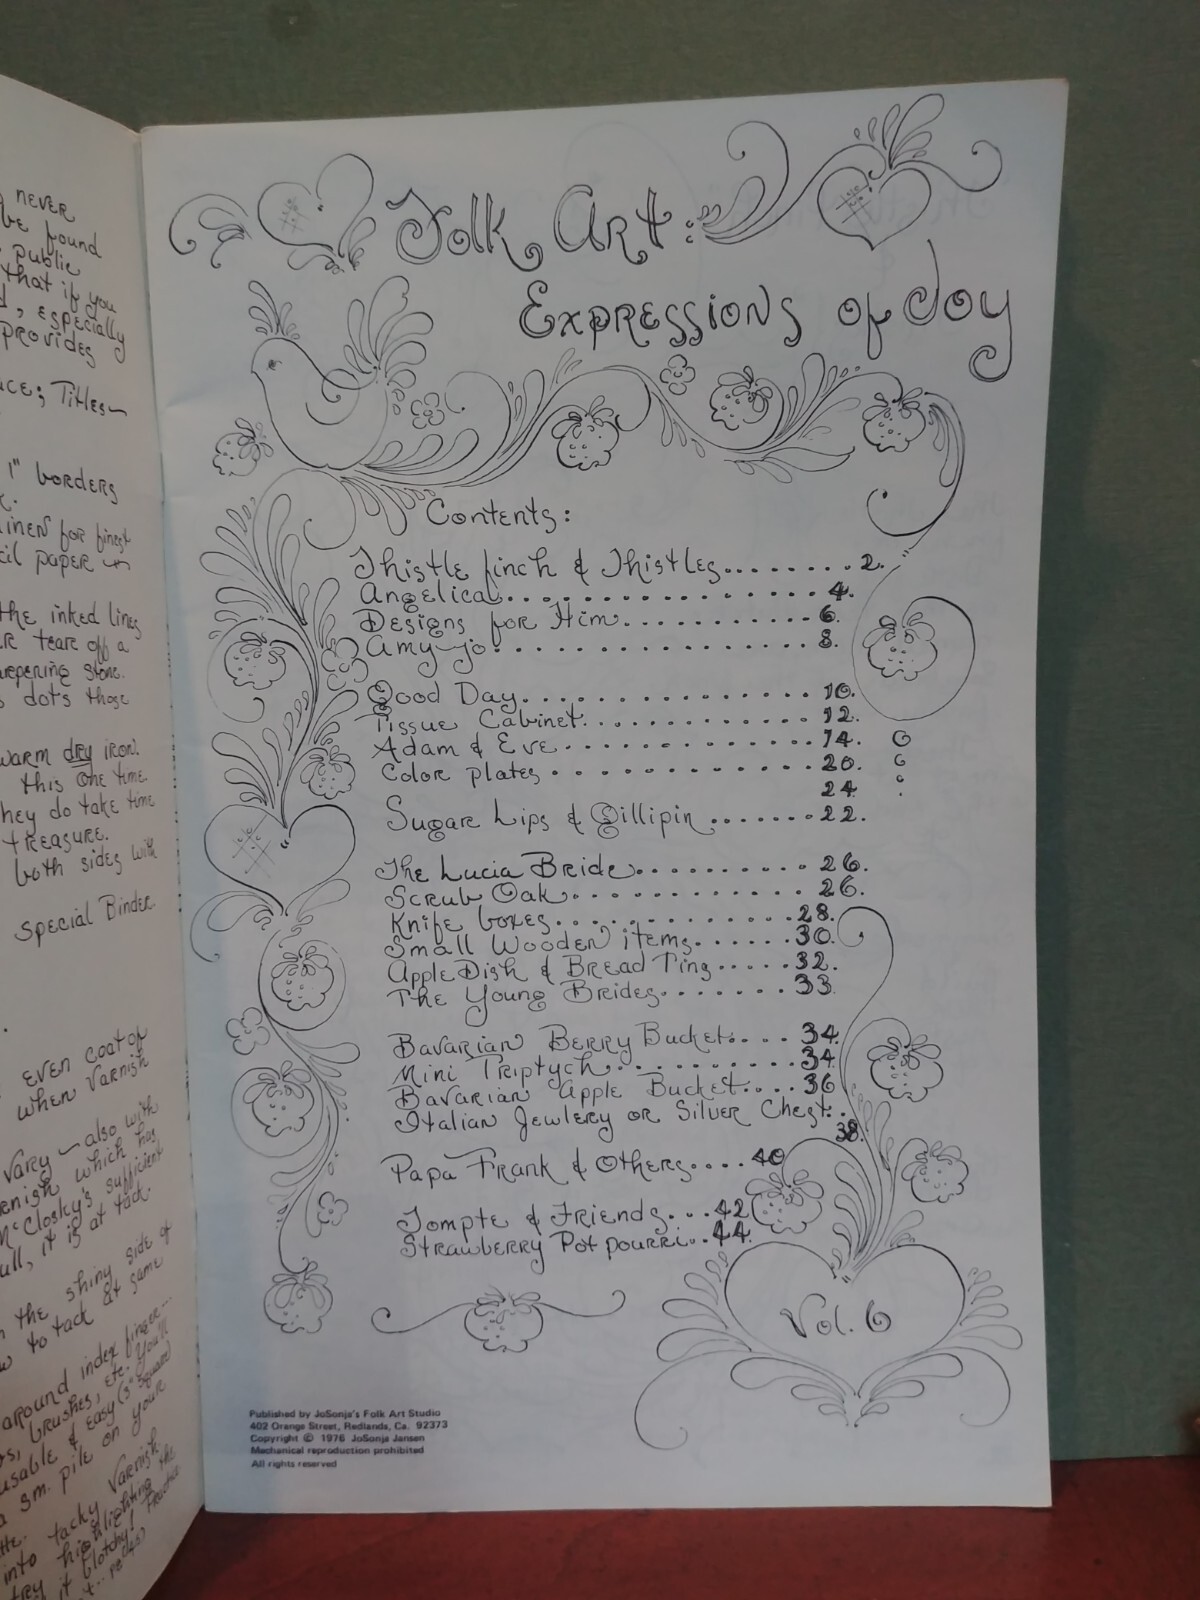 never
be found
public
that if you
, especially
provides
Titles
1" borders
for finest
paper
the inked lines
tear off a
stone.
dots those
warm dry iron.
this one time.
They do take time
treasure.
both sides with
Special Binder.
even coat of
when varnish
vary — also with
which has
McClosky's sufficient
it is at tack.
the shiny side of
to tack at same
around index finger...
brushes, etc. You'll
& easy (3" square)
sm. pile on your
into tacky varnish.
try highlighting the
it blotchy! Practice
Folk Art:
Expressions of Joy
Contents:
Thistle finch & Thistles........2.
Angelica................4.
Designs for Him..........6.
Amy-jo..............8.
Good Day..............10.
Tissue Cabinet...........12.
Adam & Eve............14.
Color plates............20.
24
Sugar Lips & Gillipin.......22.
The Lucia Bride.........26.
Scrub Oak............26.
Knife boxes...........28.
Small Wooden items......30.
Apple Dish & Bread Tins.....32.
The Young Brides.......33.
Bavarian Berry Bucket....34.
Mini Triptych.........34.
Bavarian Apple Bucket....36
Italian Jewlery or Silver Chest..
38.
Papa Frank & Others....40
Tompte & Friends...42
Strawberry Pot pourri..44.
Vol. 6
Published by JoSonja's Folk Art Studio
402 Orange Street, Redlands, Ca. 92373
Copyright © 1976 JoSonja Jansen
Mechanical reproduction prohibited
All rights reserved